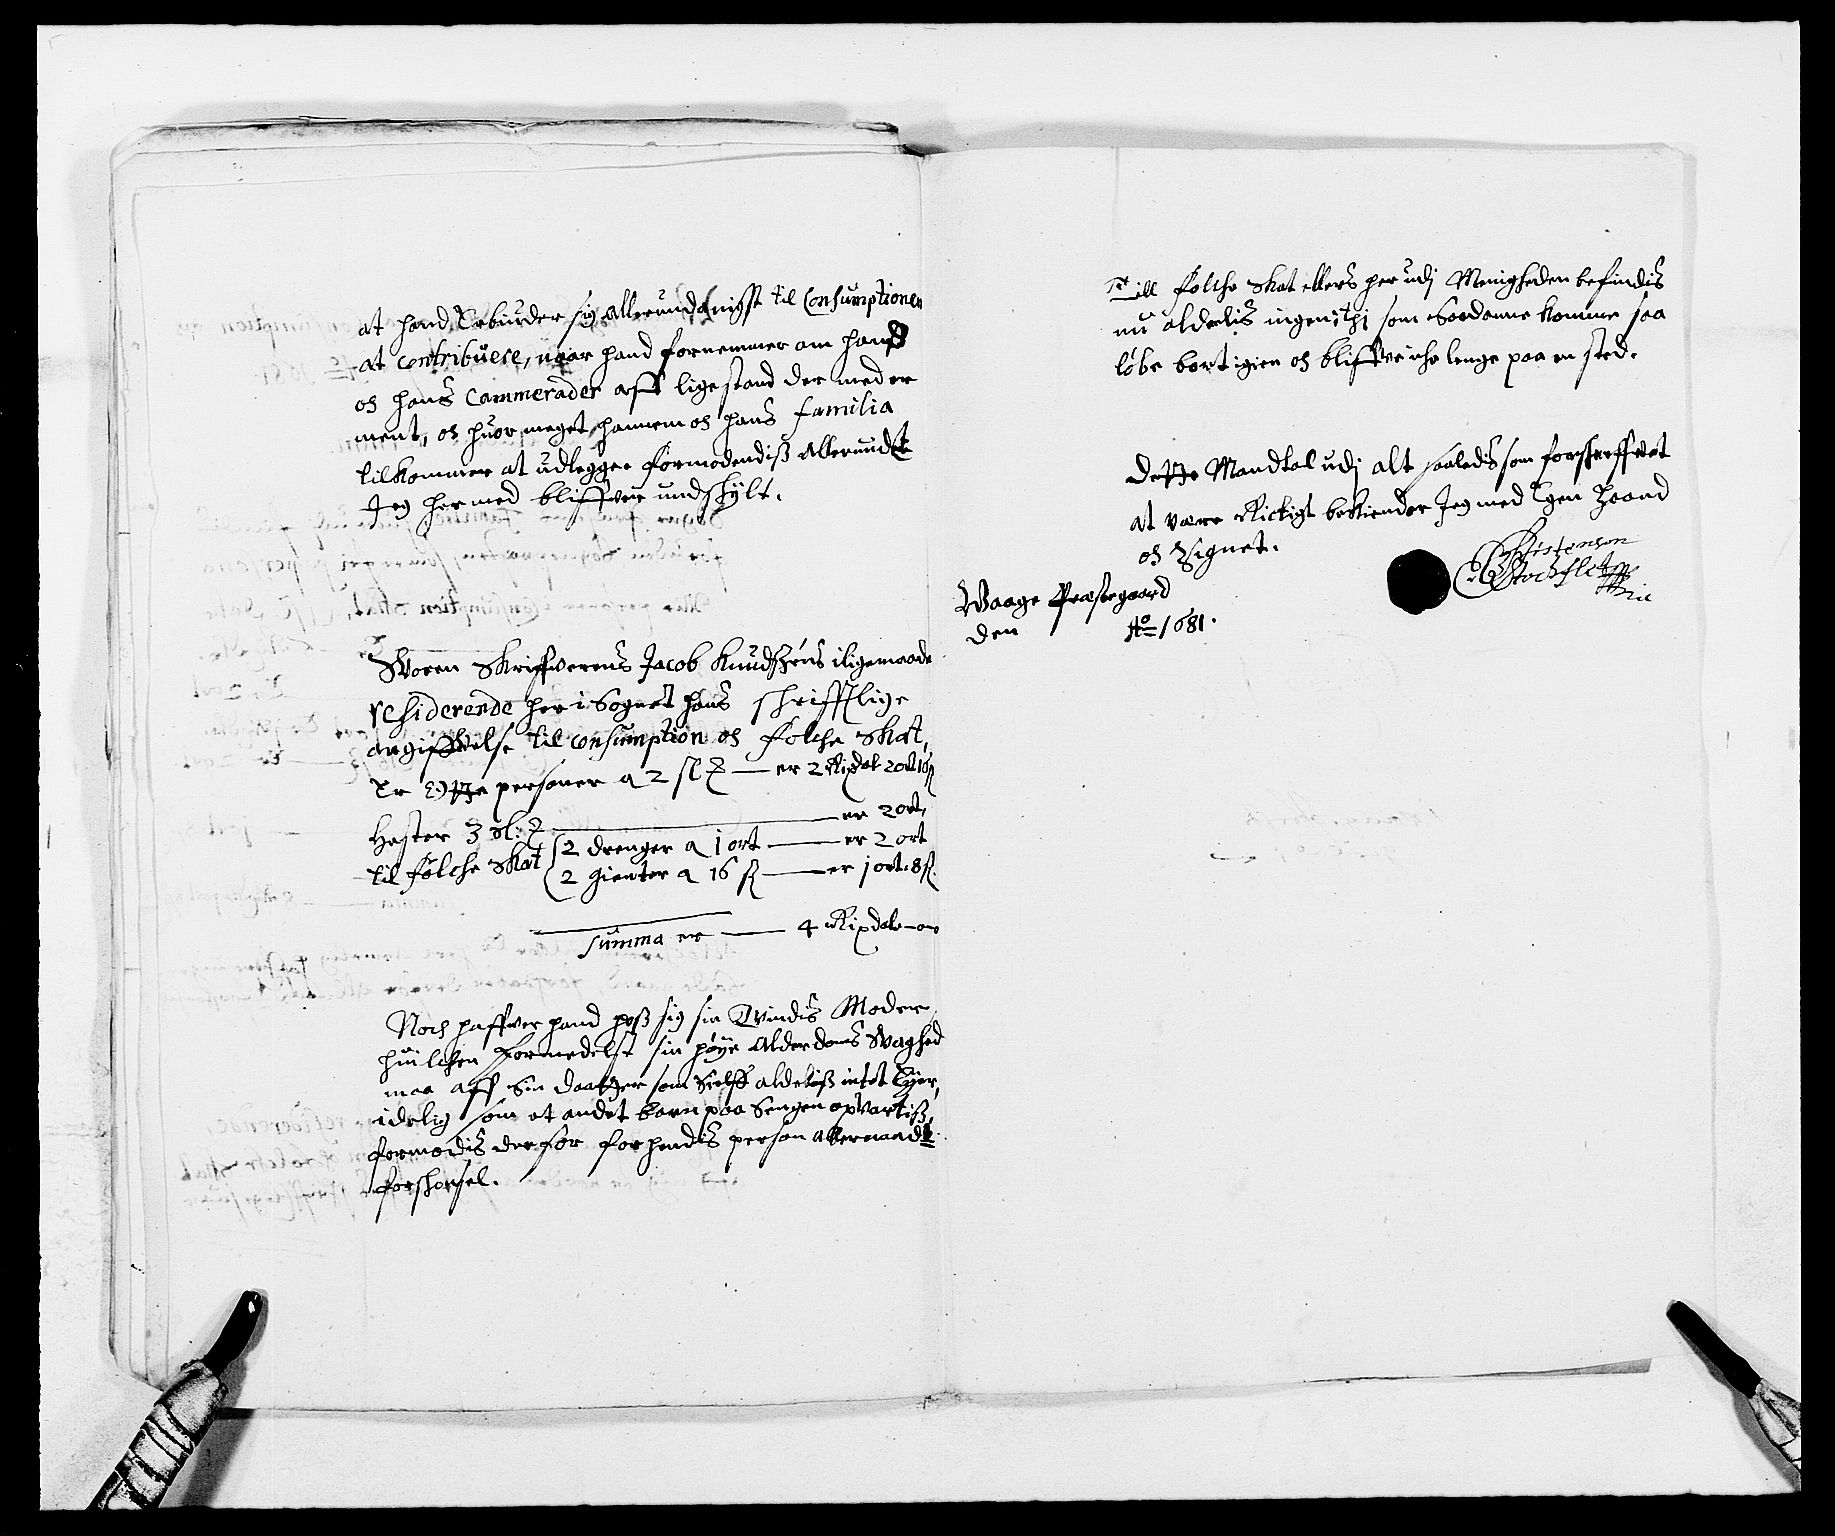 at hand Erbiuder sig Allerunddnigst til Consumptionen
at contribuere, naar hand fornemmer om hanß
oc hans Cammerader aff lige stand der med er
ment, oc huor meget hannem oc hans familia
tilkommer at udlegge formodendiß Allerundt
Jeg hermed bliffver undskylt.
Sworen Skriffverens Jacob Knudszøns iligemaade
residerende her i Sognet hans schrifftlige
angiffvelse til Consumption oc folche Skat,
Er personer a 2 — er 2 Rixdal 2 ort 16 ß
Hester 3 — er 2 ort
til folche Skat 2 drenger a 1 ort — er 2 ort
2 Pienter a 16 ß — er 1 ort 8 ß.
Summa er — 4 Rixdaler
Noch haffver hand hoß sig sin Qvindis Moder
huilchen formedelst sin høye Alderdoms Svaghed
maa aff Sin daatter som Sielff aldeliß intet Eyer,
idelig som et andet barn paa Sengen opvartiß,
formodis derfor for hendis person allernaadt
forskonsel.
Till folche Skat ellers her udj Menigheden befindis
nu aldelis ingen, thj som Saadanne komme saa
løbe bort igien oc bliffve iche lenge paa en sted.
Dette Mandtal udj alt saaledis som forskreffvet
at være Rictigt bekiender Jeg med Egen Haand
oc Signet.
Christenson
Stockfleth
Waage Præstegaard
den Ao 1681.